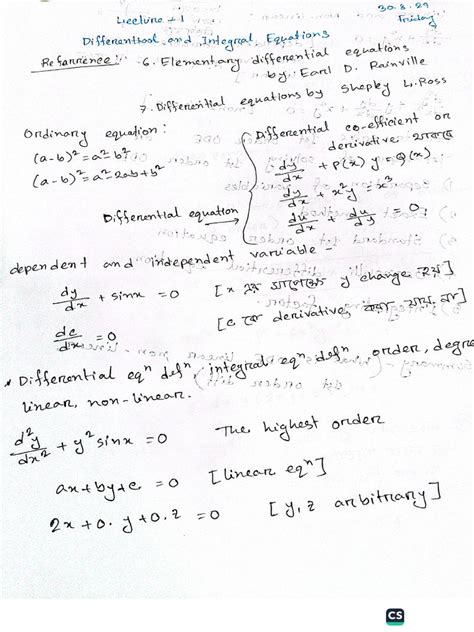 Lecture - 1
30.8.29
Friday
Differential and Integral Equations
Refarrence: 6. Elementary differential equations
by Earl D. Rainville
7. Differential equations by Shepley L. Ross
Ordinary equation:
(a-b)² = a² - b²
(a-b)² = a² - 2ab + b²
Differential equation →
Differential co-efficient or
derivative থাকবে
dy/dx + P(x) y = Q(x)
dy/dx + x²y = x³
du/dx + du/dy = 0
dependent and independent variable -
dy/dx + sinx = 0 [x এর সাপেক্ষে y change হয়]
dc/dx = 0 [c কে derivative করা যায় না]
* Differential eqⁿ defⁿ, integral eqⁿ defⁿ, order, degree
linear, non-linear.
d²y/dx² + y² sinx = 0 The highest order
ax + by + c = 0 [linear eqⁿ]
2x + 0.y + 0.z = 0 [y, z arbitrary]
CS